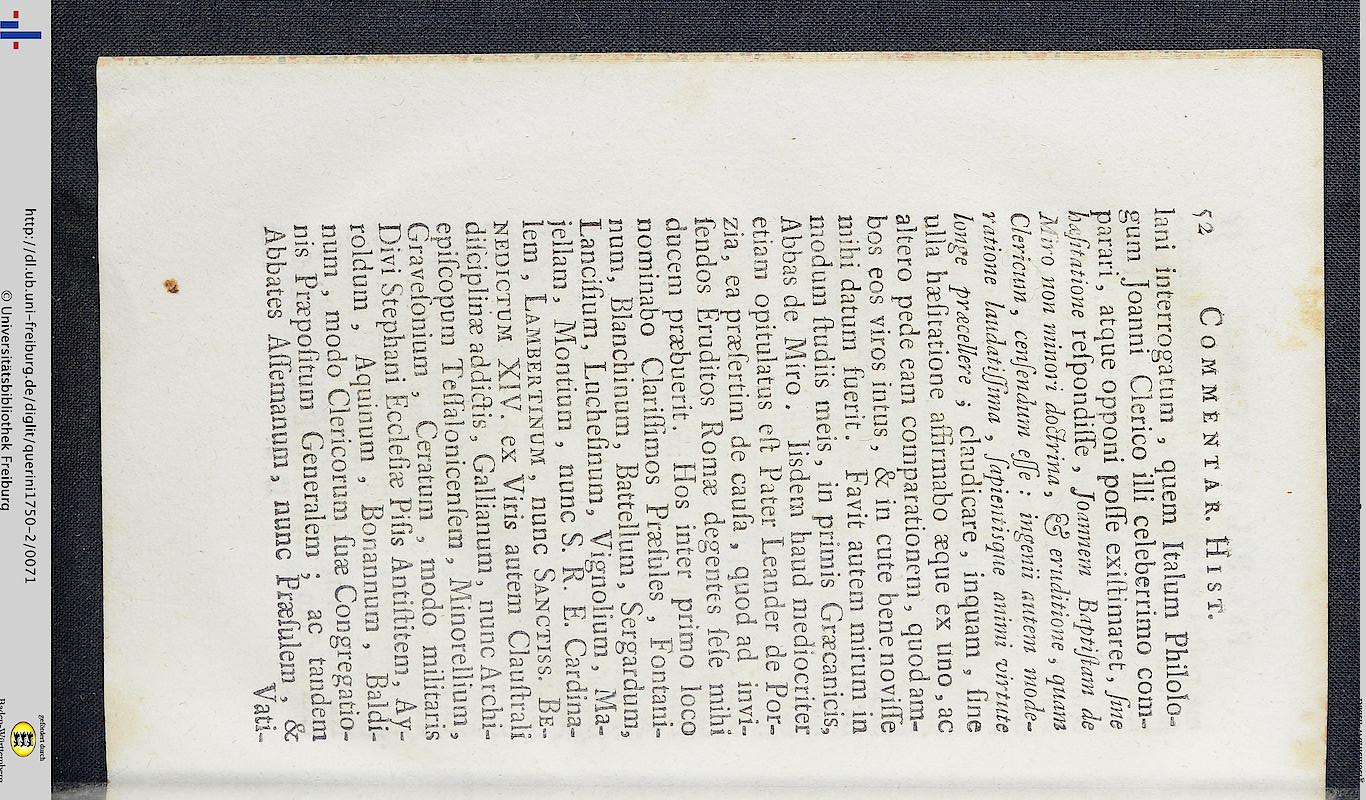 52 COMMENTAR. HIST.
lani interrogatum, quem Italum Philolo-
gum Joanni Clerico illi celeberrimo com-
parari, atque opponi poſſe exiſtimaret, ſine
hæſitatione reſpondiſſe, Joannem Baptiſtam de
Miro non minori doctrina, & eruditione, quam
Clericum, cenſendum eſſe; ingenii autem mode-
ratione laudatiſſima, ſapientisque animi virtute
longe præcellere; claudicare, inquam, ſine
ulla hæſitatione affirmabo æque ex uno, ac
altero pede eam comparationem, quod am-
bos eos viros intus, & in cute bene noviſſe
mihi datum fuerit. Favit autem mirum in
modum ſtudiis meis, in primis Græcanicis,
Abbas de Miro. Iisdem haud mediocriter
etiam opitulatus eſt Pater Leander de Por-
zia, ea præſertim de cauſa, quod ad invi-
ſendos Eruditos Romæ degentes ſeſe mihi
ducem præbuerit. Hos inter primo loco
nominabo Clariſſimos Præſules, Fontani-
num, Blanchinum, Battellum, Sergardum,
Lanciſium, Lucheſinum, Vignolium, Ma-
jellam, Montium, nunc S. R. E. Cardina-
lem, LAMBERTINUM, nunc SANCTISS. BE-
NEDICTUM XIV. ex Viris autem Clauſtrali
diſciplinæ addictis, Gallianum, nunc Archi-
epiſcopum Teſſalonicenſem, Minorellium,
Graveſonium, Ceratum, modo militaris
Divi Stephani Eccleſiæ Piſis Antiſtitem, Ay-
roldum, Aquinum, Bonannum, Baldi-
num, modo Clericorum ſuæ Congregatio-
nis Præpoſitum Generalem; ac tandem
Abbates Aſſemanum, nunc Præſulem, &
Vati-
http://dl.ub.uni-freiburg.de/diglit/querini1750-2/0071
© Universitätsbibliothek Freiburg
gefördert durch
Baden-Württemberg